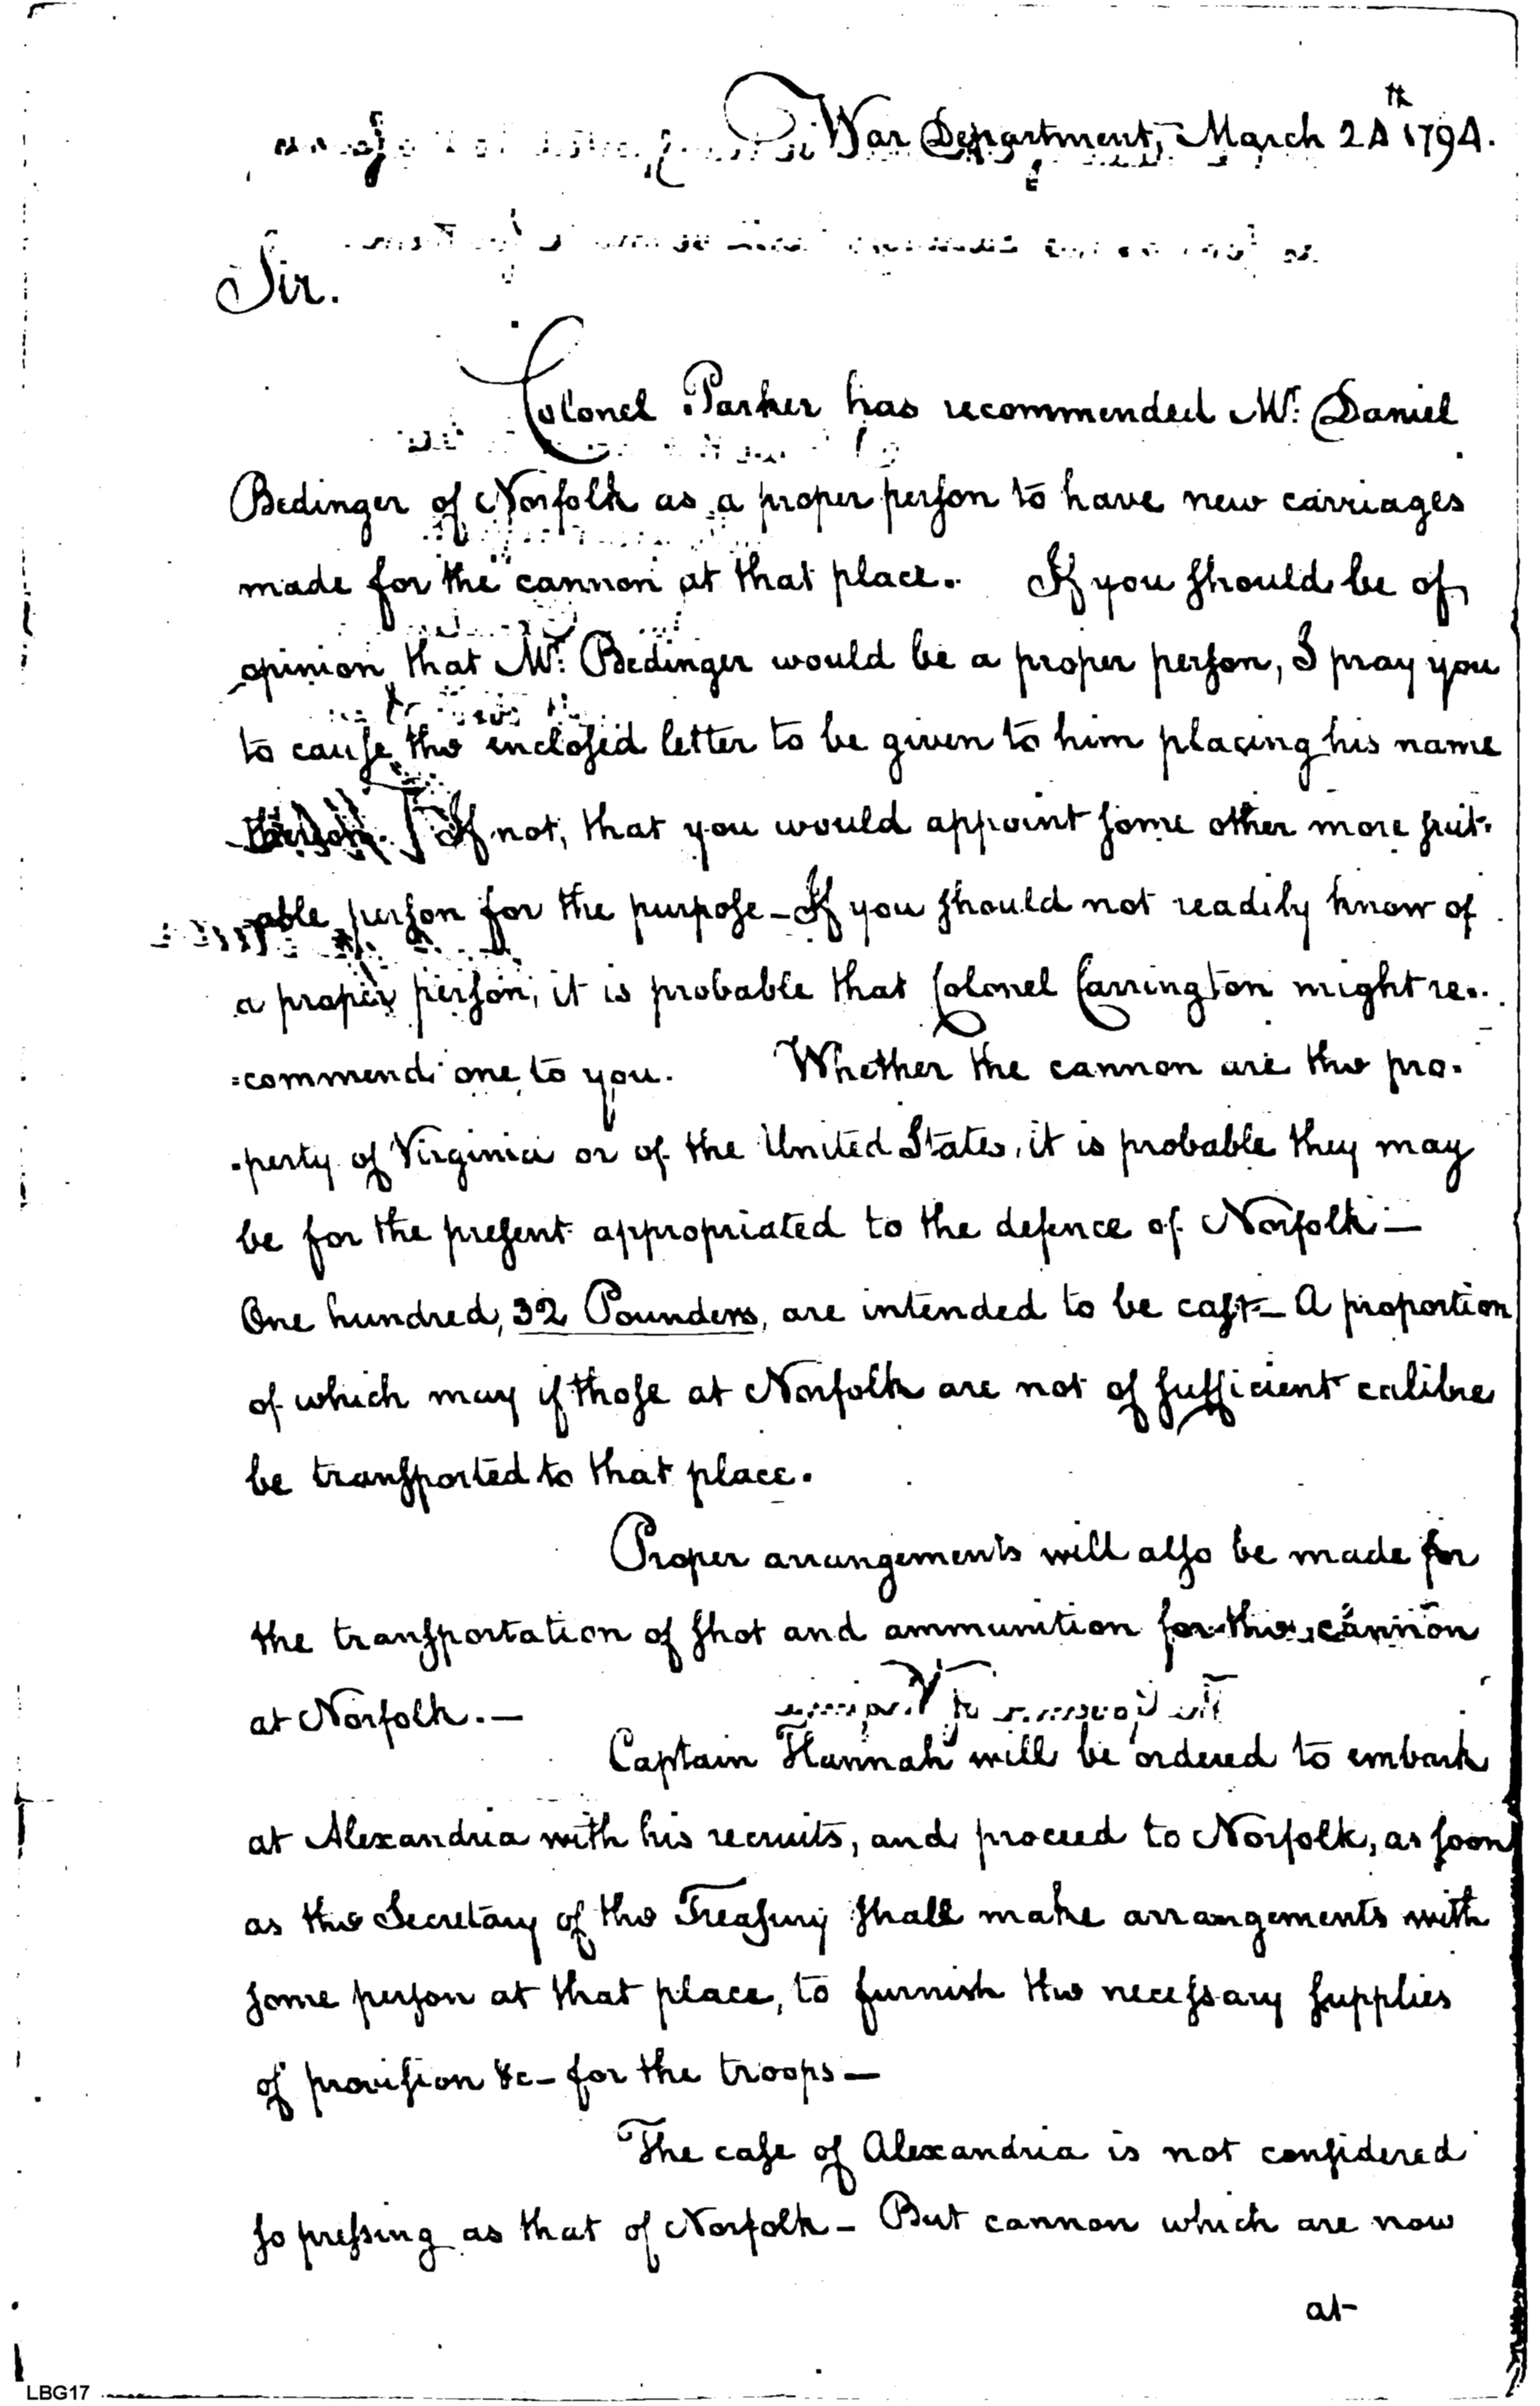 War Department, March 24th 1794.
Sir.
Colonel Parker has recommended Mr. Daniel
Bedinger of Norfolk as a proper person to have new carriages
made for the cannon at that place. If you should be of
opinion that Mr. Bedinger would be a proper person, I pray you
to cause the enclosed letter to be given to him placing his name
thereon. If not, that you would appoint some other more suit-
able person for the purpose — If you should not readily know of
a proper person, it is probable that Colonel Carrington might re-
=commend one to you. Whether the cannon are the pro-
-perty of Virginia or of the United States, it is probable they may
be for the present appropriated to the defence of Norfolk —
One hundred, 32 Pounders, are intended to be cast — A proportion
of which may if those at Norfolk are not of sufficient calibre
be transported to that place.
Proper arrangements will also be made for
the transportation of shot and ammunition for the cannon
at Norfolk. —
Captain Hannah will be ordered to embark
at Alexandria with his recruits, and proceed to Norfolk, as soon
as the Secretary of the Treasury shall make arrangements with
some person at that place, to furnish the necessary supplies
of provision &c — for the troops —
The case of Alexandria is not considered
so pressing as that of Norfolk — But cannon which are now
at
LBG17